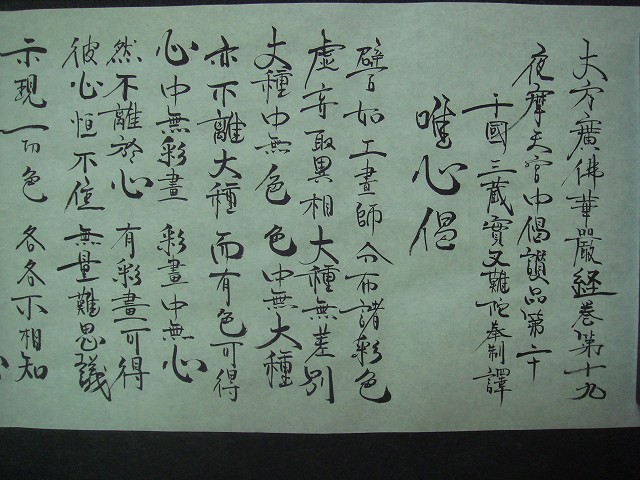 大方廣佛華嚴経巻第十九
夜摩天宮中偈讃品第二十
于國三蔵實叉難陀奉制譯
唯心偈
譬如工畫師 分布諸彩色
虚妄取異相 大種無差別
大種中無色 色中無大種
亦不離大種 而有色可得
心中無彩畫 彩畫中無心
然不離於心 有彩畫可得
彼心恒不住 無量難思議
示現一切色 各各不相知